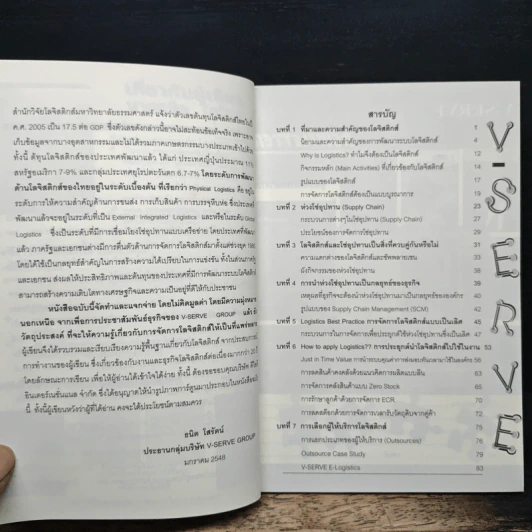 สำนักวิจัยโลจิสติกส์มหาวิทยาลัยธรรมศาสตร์ แจ้งว่าตัวเลขต้นทุนโลจิสติกส์ไทยในปี
ค.ศ. 2005 เป็น 17.5 ต่อ GDP ซึ่งตัวเลขดังกล่าวนี้อาจไม่สะท้อนข้อเท็จจริง เพราะ
เก็บข้อมูลจากบางอุตสาหกรรมและไม่ได้รวมภาคเกษตรกรรมบางประเภทเข้าไปด้วย
ทั้งนี้ ต้นทุนโลจิสติกส์ของประเทศพัฒนาแล้ว ได้แก่ ประเทศญี่ปุ่นประมาณ 11%
สหรัฐอเมริกา 7-9% และกลุ่มประเทศยุโรปตะวันตก 6.7-7% โดยการพัฒนา
ด้านโลจิสติกส์ของไทยอยู่ในระดับเบื้องต้น ที่เรียกว่า Physical Logistics คือ
ระดับการให้ความสำคัญด้านการขนส่ง การเก็บสินค้า การบรรจุหีบห่อ ซึ่งประเทศ
พัฒนาแล้วจะอยู่ในระดับที่เป็น External Integrated Logistics และหรือในระดับ Global
Logistics ซึ่งเป็นระดับที่มีการเชื่อมโยงโซ่อุปทานแบบเครือข่าย โดยประเทศพัฒนา
แล้ว ภาครัฐและเอกชนต่างมีการตื่นตัวด้านการจัดการโลจิสติกส์มาตั้งแต่ช่วงยุค
โดยได้ใช้เป็นกลยุทธ์สำคัญในการสร้างความได้เปรียบในการแข่งขัน ทั้งในส่วนภาครัฐ
และเอกชน ส่งผลให้ประสิทธิภาพและต้นทุนของประเทศที่มีการพัฒนาระบบโลจิสติกส์
สามารถสร้างความเติบโตทางเศรษฐกิจและความเป็นอยู่ที่ดีให้กับประชาชน
หนังสือฉบับนี้จัดทำและแจกจ่าย โดยไม่คิดมูลค่า โดยมีความมุ่งหมาย
นอกเหนือ จากเพื่อการประชาสัมพันธ์ธุรกิจของ V-SERVE GROUP แล้ว
วัตถุประสงค์ ที่จะให้ความรู้เกี่ยวกับการจัดการโลจิสติกส์ให้เป็นที่แพร่หลาย
ผู้เขียนจึงได้รวบรวมและเรียบเรียงความรู้พื้นฐานเกี่ยวกับโลจิสติกส์ จากประสบการณ์
การทำงานของผู้เขียน ซึ่งเกี่ยวข้องกับงานและธุรกิจโลจิสติกส์ต่อเนื่องมากกว่า
โดยลักษณะการเขียน เพื่อให้ผู้อ่านได้เข้าใจได้ง่าย ทั้งนี้ ต้องขอขอบคุณบริษัท
อินเตอร์เนชั่นแนล จำกัด ซึ่งได้อนุญาตให้นำรูปภาพการ์ตูนมาประกอบในหนังสือ
นี้ ทั้งนี้ผู้เขียนหวังว่าผู้ที่ได้อ่าน คงจะได้ประโยชน์ตามสมควร
ธนิต โสรัตน์
ประธานกลุ่มบริษัท V-SERVE GROUP
มกราคม 2548
สารบัญ
บทที่ 1 ที่มาและความสำคัญของโลจิสติกส์ 1
นิยามและความสำคัญของการพัฒนาระบบโลจิสติกส์ 4
Why is Logistics? ทำไมจึงต้องเป็นโลจิสติกส์ 7
กิจกรรมหลัก (Main Activities) ที่เกี่ยวข้องกับโลจิสติกส์ 14
รูปแบบของโลจิสติกส์ 17
การจัดการโลจิสติกส์ต้องเป็นแบบบูรณาการ 19
บทที่ 2 ห่วงโซ่อุปทาน (Supply Chain) 23
กระบวนการต่างๆในโซ่อุปทาน (Supply Chain) 27
ประโยชน์ของการจัดการโซ่อุปทาน 29
บทที่ 3 โลจิสติกส์และโซ่อุปทานเป็นสิ่งที่ควบคู่กันหรือไม่ 31
ความแตกต่างของโลจิสติกส์และซัพพลายเชน 33
ผังกิจกรรมของห่วงโซ่อุปทาน 34
บทที่ 4 การนำห่วงโซ่อุปทานเป็นกลยุทธ์ของธุรกิจ
เหตุผลที่ธุรกิจจะต้องนำห่วงโซ่อุปทานมาเป็นกลยุทธ์ขององค์กร
รูปแบบของ Supply Chain Management (SCM)
บทที่ 5 Logistics Best Practice การจัดการโลจิสติกส์แบบเป็นเลิศ
กระบวนการในการจัดการเพื่อประยุกต์ใช้ห่วงโซ่อุปทานซึ่งเป็นที่เป็นเลิศ
บทที่ 6 How to apply Logistics?? การประยุกต์นำโลจิสติกส์ไปใช้ในงาน 53
Just in Time Value การนำระบบคุณค่าการส่งมอบทันเวลามาใช้ในองค์กร 56
การลดสินค้าคงคลังด้วยแนวคิดการผลิตแบบลีน 60
การจัดการคลังสินค้าแบบ Zero Stock 65
การรักษาลูกค้าด้วยการจัดการ ECR 70
การลดสต๊อกด้วยการจัดการเวลารับวัตถุดิบจากคู่ค้า 75
บทที่ 7 การเลือกผู้ให้บริการโลจิสติกส์ 76
การแยกประเภทของผู้ให้บริการ (Outsources) 76
Outsource Case Study 79
V-SERVE E-Logistics 83
V-SERVE